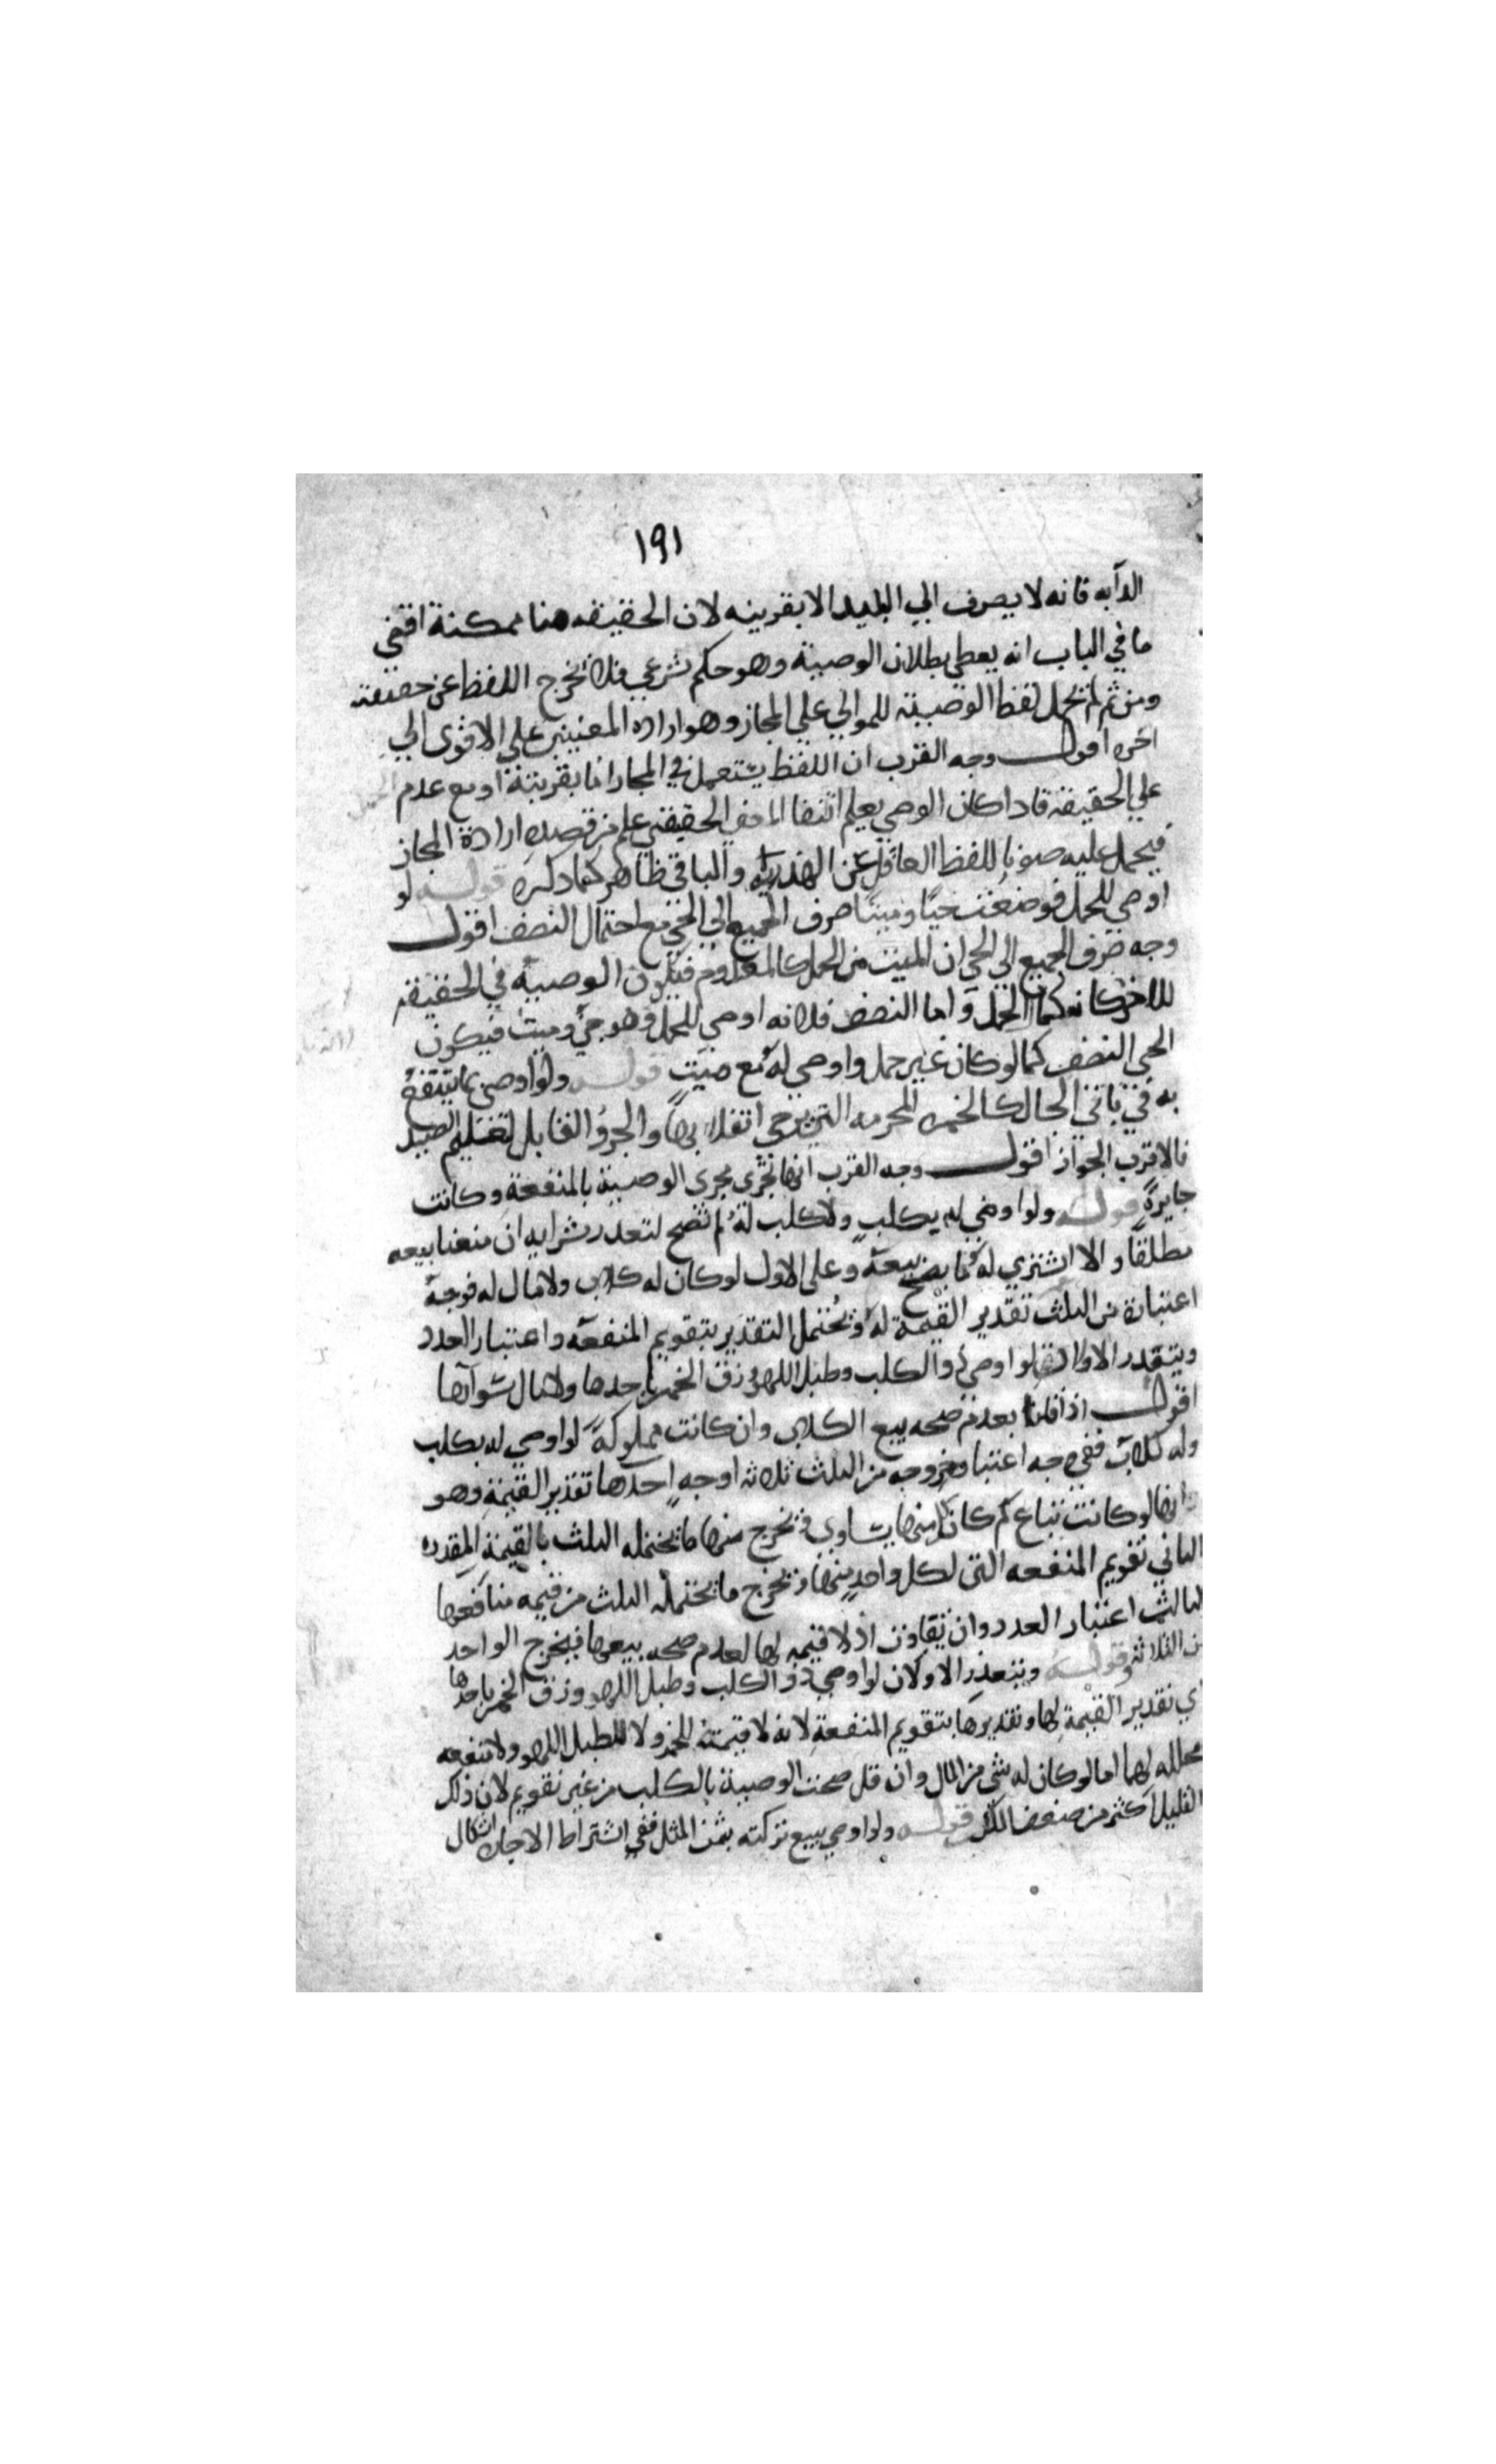 ١٩١
الدابه فانه لا يصرف الي البليد الا بقرينه لان الحقيقه هنا ممكنة اقتضي
ما في الباب انه يعطي بطلان الوصية وهو حكم شرعي فلا تخرج اللفظ عن حقيقته
ومن ثم لم تحمل لفظ الوصية للموالي علي المجاز وهو اراده المعنيين علي الاقوى الي
اخره اقول وجه القرب ان اللفظ يستعمل في المجاز اما بقرينة او مع عدم الحمل
علي الحقيقة فاذا كان الوصي يعلم انتفا المعني الحقيقي علم من قصده ارادة المجاز
فيحمل عليه صونا للفظ العاقل عن الهذرية والباقي ظاهر كما ذكره قوله لو
اوصي للحمل فوضعت حيا وميتا صرف الجميع الي الحي مع احتمال النصف اقول
وجه صرف الجميع الي الحي ان الميت من الحمل كالمعدوم فيكون الوصية في الحقيقة
للاخر كانه كمال الحمل واما النصف فلانه اوصي للحمل وهو حي وميت فيكون
الحي النصف كما لو كان غير حمل واوصي له مع ميت قوله ولو اوصي بما ينتفع
به في باقي الحال كالخمر المحرمه التي يرجي انقلابها والجرو القابل لتعليم الصيد
فالاقرب الجواز اقول وجه القرب انها تجري مجرى الوصية بالمنفعة وكانت
جايزة قوله ولو اوصي له بكلب ولا كلب له لم تصح لتعذر شرايه ان منعنا بيعه
مطلقا والا اشتري له ما يصح بيعه وعلى الاول لو كان له كلاب ولا مال له فوجه
اعتباره من الثلث تقدير القيمة له وتحتمل التقدير بتقويم المنفعه واعتبار العدد
ويتعذر الاولان لو اوصي ذو الكلب وطبل اللهو وزق الخمر باحدها ولا مال سواها
اقول اذا قلنا بعدم صحه بيع الكلاب وان كانت مملوكة لو اوصي له بكلب
وله كلاب ففي وجه اعتبار خروجه من الثلث ثلاثه اوجه احدها تقدير القيمة وهو
انها لو كانت تباع كم كان كل منها يساوي فتخرج منها ما تحتمله الثلث بالقيمة المقدره
الثاني تقويم المنفعه التي لكل واحد منها وتخرج ما تحتمله الثلث من قيمه منافعها
الثالث اعتبار العدد وان تفاوت اذ لا قيمه لها لعدم صحه بيعها فيخرج الواحد
من الثلاثة وقوله ويتعذر الاولان لو اوصي ذو الكلب وطبل اللهو وزق الخمر باحدها
اي تقدير القيمة لها وتقديرها بتقويم المنفعة لانه لا قيمة للخمر ولا للطبل اللهو ولا منفعه
محلله لهما اما لو كان له شي من المال وان قل صحت الوصية بالكلب من غير تقويم لان ذلك
القليل اكثر من ضعف الكل قوله ولو اوصي ببيع تركته بثمن المثل ففي اشتراط الاجازه اشكال